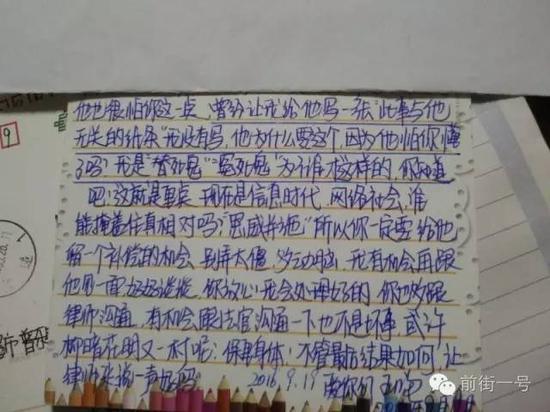 他也很怕你这一点,曾经让我给他写一张“此事与他
无关的纸条”我没有写,他为什么要这个,因为他怕你懂
了吗?我是“替死鬼”“冤死鬼”为了谁才这样的,你知道
吧!这就是重点 现在是信息时代,网络社会,谁
能掩盖住真相对吗?“恩威并施”所以你一定要给他
留一个补偿的机会,别弄太僵,多动脑,我有机会再跟
他見一面好好谈谈,你放心!我会处理好的,你也多跟
律师沟通,有机会跟法官沟通一下也不是坏事 或许
柳暗花明又一村呢,保重身体!不管最后结果如何,让
律师来说一声好吗?
2016.9.19 爱你们
9
前街一号